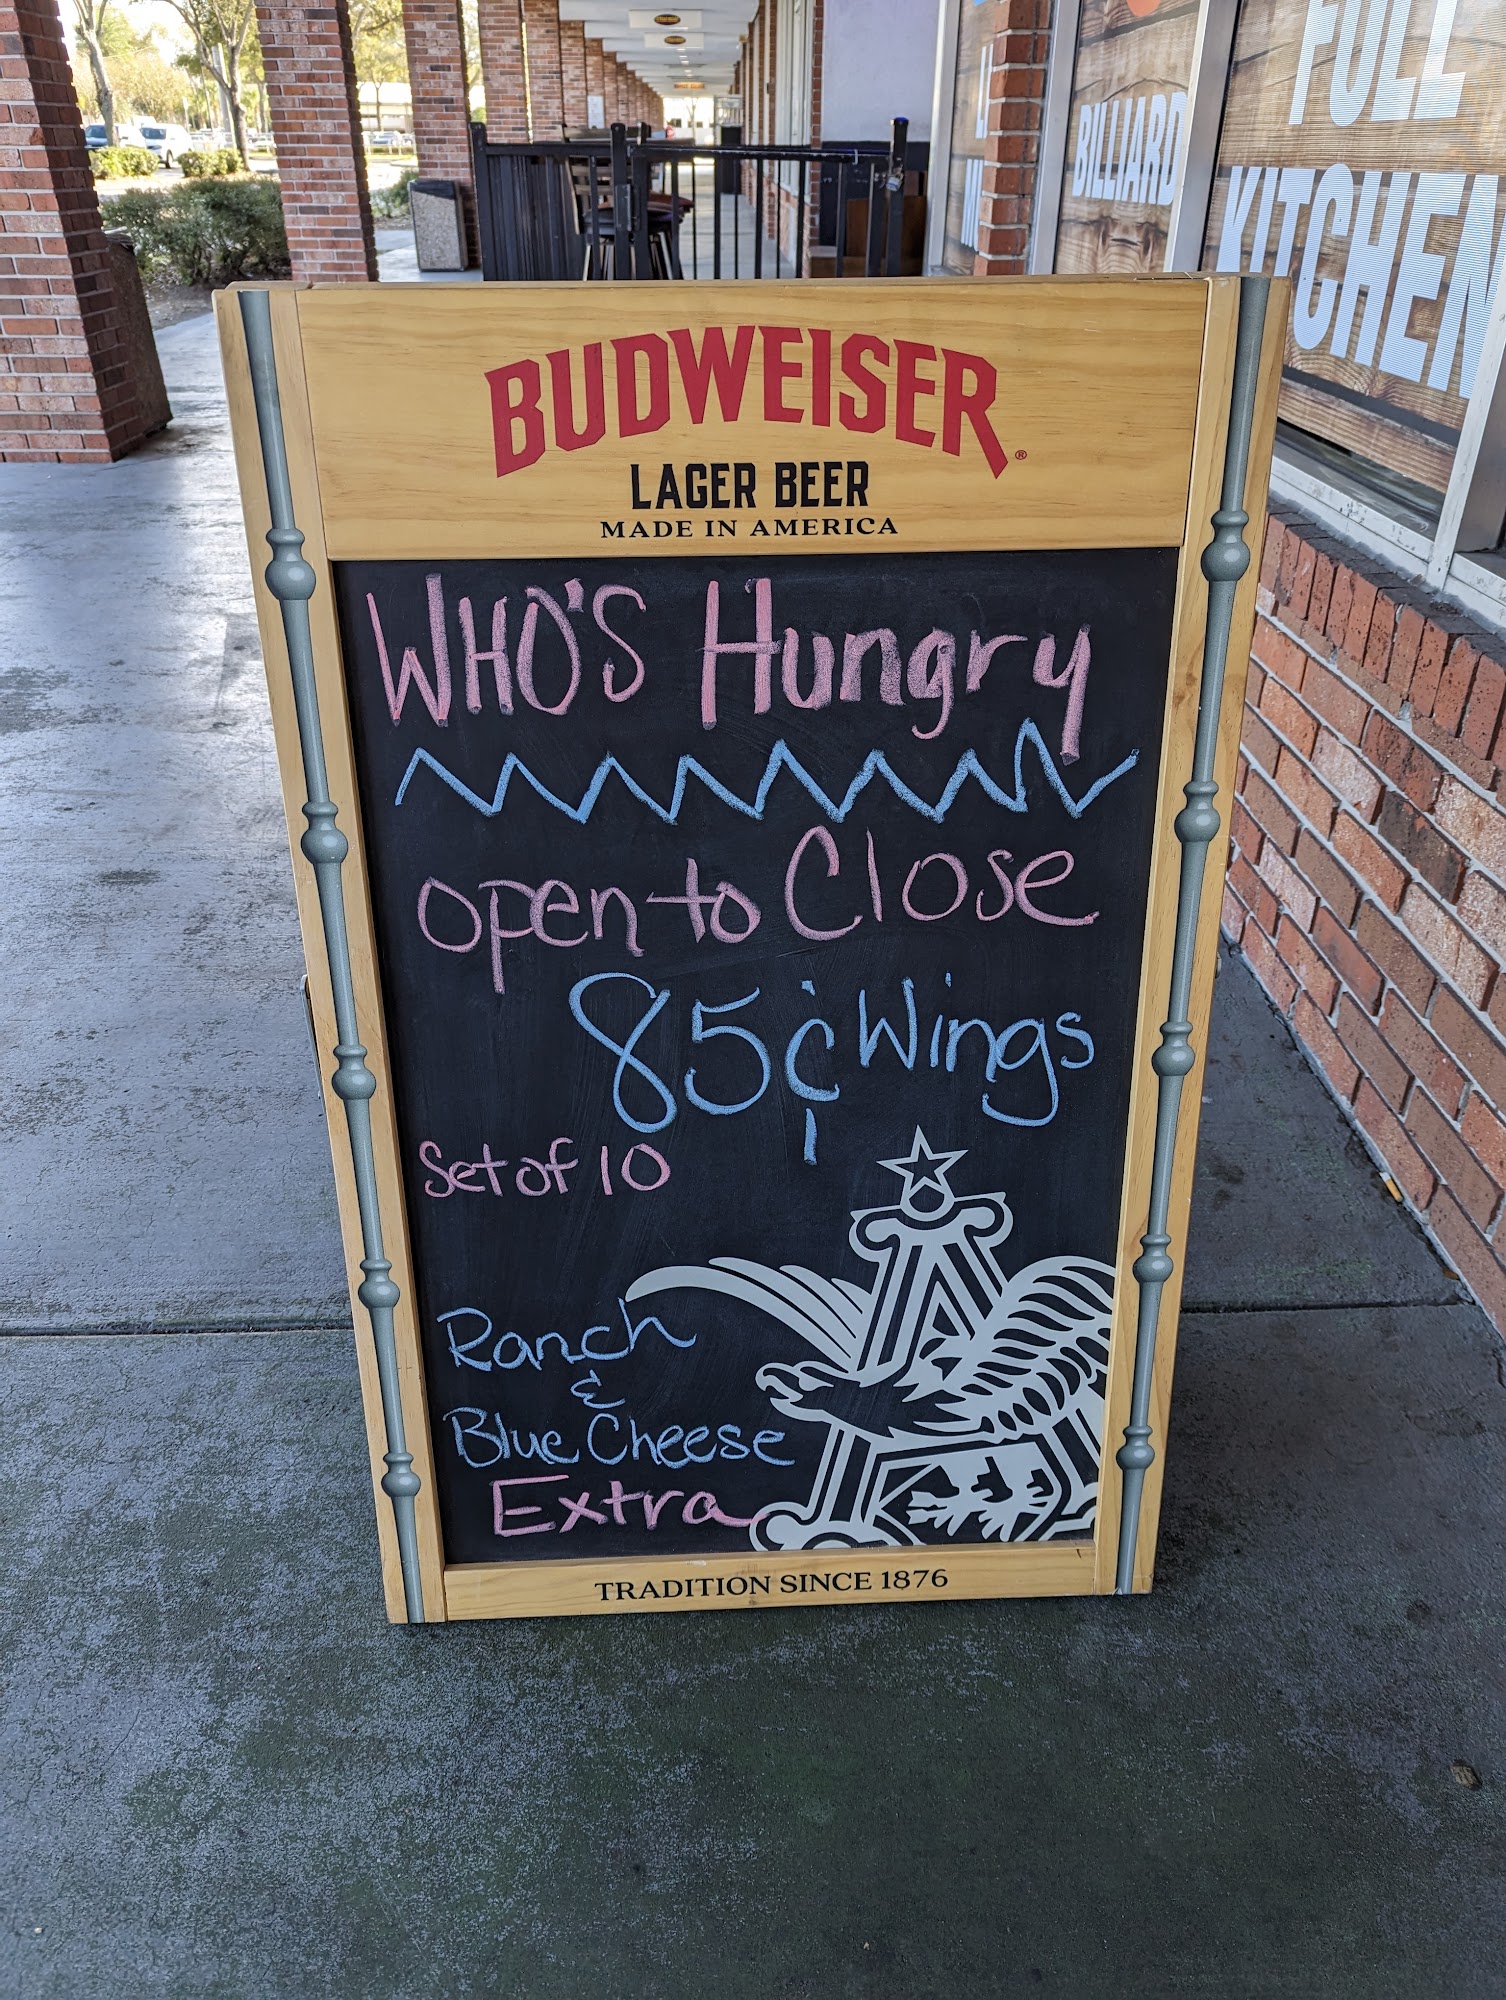 FULL
KITCHEN
BILLIARD
BUDWEISER®
LAGER BEER
MADE IN AMERICA
WHO'S Hungry
open to Close
85¢ Wings
Set of 10
Ranch
&
Blue Cheese
Extra
TRADITION SINCE 1876